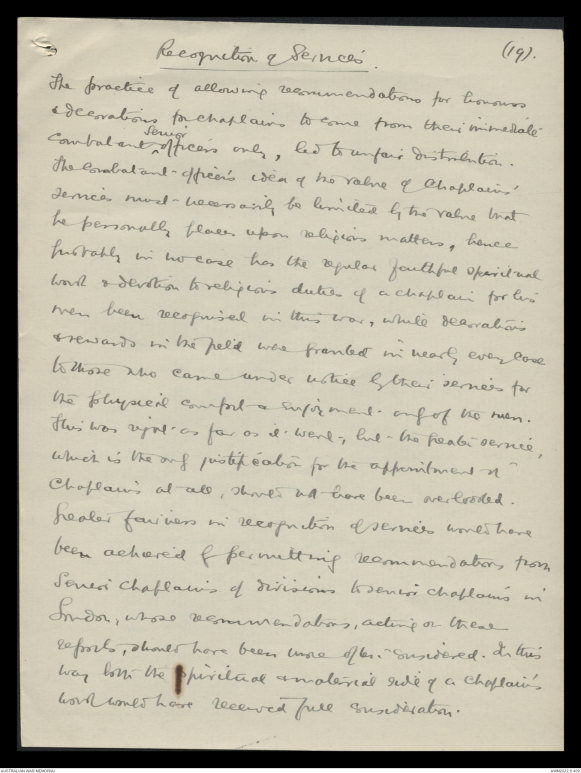 Recognition of Services.
(19).
The practice of allowing recommendations for honours
& decorations for chaplains to come from their immediate
Senior
combatant officers only, led to unfair distribution.
The combatant officer's idea of the value of Chaplains'
services must necessarily be limited by the value that
he personally places upon religious matters, hence
probably in no case has the regular faithful spiritual
work & devotion to religious duties of a chaplain for his
men been recognised in this war, while decorations
& rewards in the field were granted in nearly every case
to those who came under notice by their services for
the physical comfort & enjoyment only of the men.
This was right as far as it went, but the greater service,
which is the only justification for the appointment of
Chaplains at all, should not have been overlooked.
Greater fairness in recognition of services would have
been achieved by permitting recommendations from
Senior Chaplains of divisions to senior chaplains in
London, whose recommendations, acting on these
reports, should have been more often considered. In this
way both the spiritual & material side of a Chaplain's
work would have received full consideration.
AUSTRALIAN WAR MEMORIAL